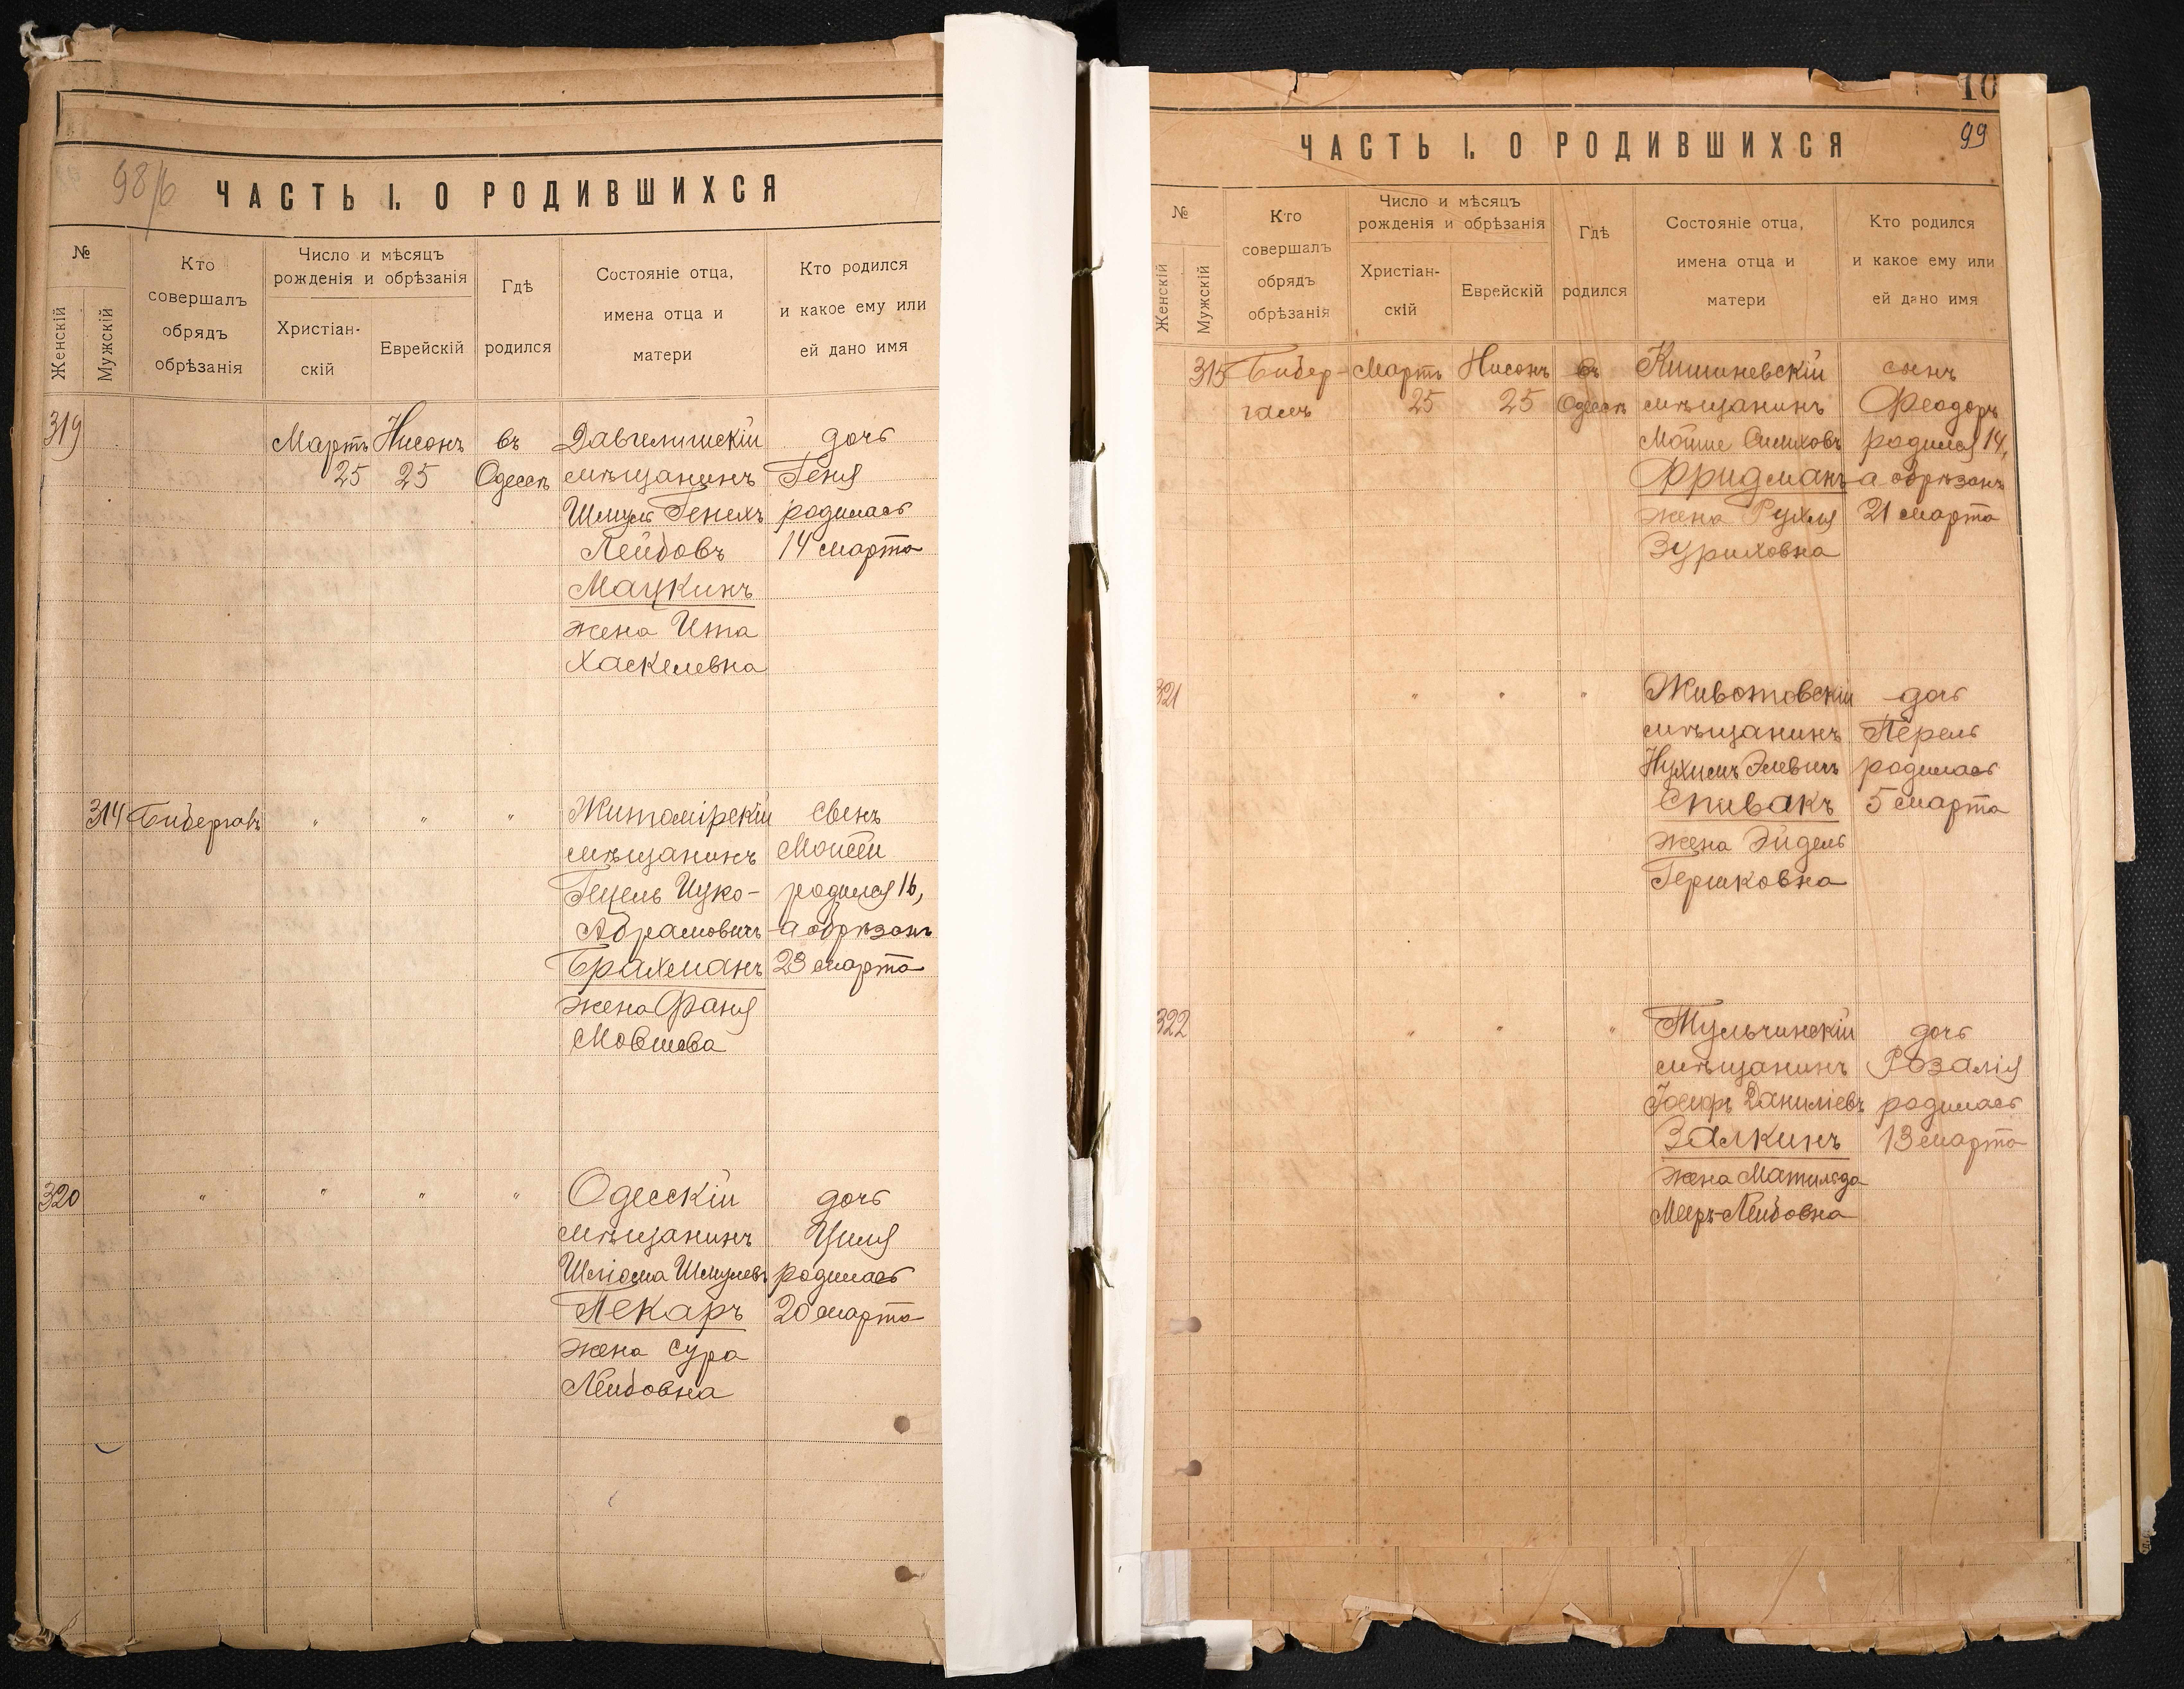 98/б
ЧАСТЬ I. О РОДИВШИХСЯ
№
Женскій
Мужскій
Кто совершалъ обрядъ обрѣзанія
Число и мѣсяцъ рожденія и обрѣзанія
Христіан-
скій
Еврейскій
Гдѣ родился
Состояніе отца, имена отца и матери
Кто родился и какое ему или ей дано имя
319 Мартъ Нисонъ въ дочь
25 25 Одессѣ мѣщанинъ Геня
Шмуль Генехъ родилась
Лейбовъ 14 марта
Мацкинъ
жена Ита
Хаскелевна
314 " " " Житомірскій сынъ
мѣщанинъ Моисей
Гецель Ицко- родился 16,
Абрамовичъ а обрѣзанъ
Брахманъ 23 марта
жена Фаня
Мовшева
320 " " " " Одесскій дочь
мѣщанинъ Циля
Шліома Шмулевъ родилась
Пекарь 20 марта
жена Сура
Лейбовна
10
99
ЧАСТЬ I. О РОДИВШИХСЯ
№
Женскій
Мужскій
Кто совершалъ обрядъ обрѣзанія
Число и мѣсяцъ рожденія и обрѣзанія
Христіан-
скій
Еврейскій
Гдѣ родился
Состояніе отца, имена отца и матери
Кто родился и какое ему или ей дано имя
315 Бибер- Мартъ Нисонъ въ Кишиневскій сынъ
галь 25 25 Одессѣ мѣщанинъ Феодоръ
Мошие родился 14,
Фридманъ а обрѣзанъ
жена Рухля 21 марта
Зуриховна
321 " " " Животовскій дочь
мѣщанинъ Перель
Нухимъ Элевичъ родилась
Спивакъ 5 марта
жена Эйдель
Гершковна
322 " " " Тульчинскій дочь
мѣщанинъ Розалія
Іосифъ Даниліевъ родилась
Залкинъ 13 марта
жена Матильда
Мееръ-Лейбовна